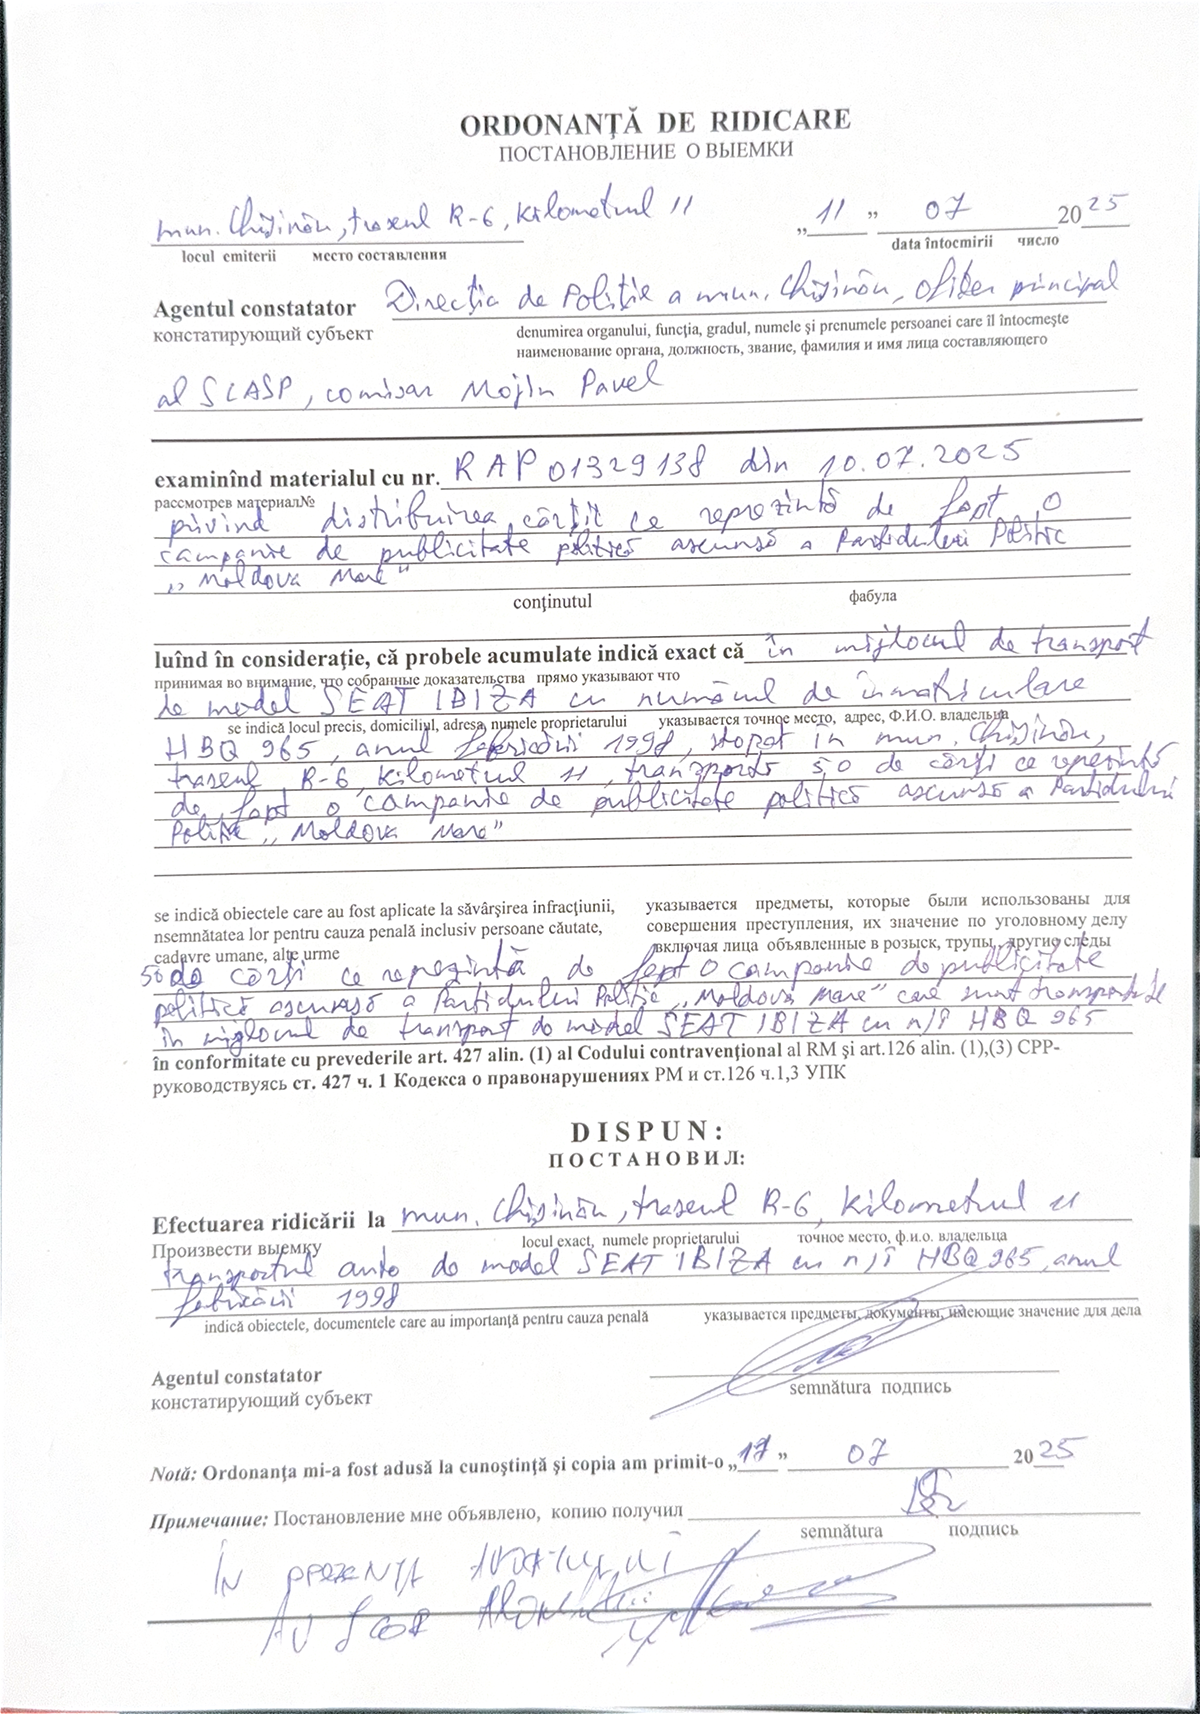 ORDONANŢĂ DE RIDICARE
ПОСТАНОВЛЕНИЕ О ВЫЕМКИ
mun. Chişinău, traseul R-6, kilometrul 11 „11” 07 2025
locul emiterii место составления data întocmirii число
Agentul constatator Direcţia de Poliţie a mun. Chişinău, ofiţer principal
констатирующий субъект denumirea organului, funcţia, gradul, numele şi prenumele persoanei care îl întocmeşte
наименование органа, должность, звание, фамилия и имя лица составляющего
al SCASP, comisar Mojin Pavel
examinînd materialul cu nr. RAP 01329138 din 10.07.2025
рассмотрев материал№
privind distribuirea cărţii ce reprezintă de fapt o
campanie de publicitate politică ascunsă a Partidului Politic
„Moldova Mare”
conţinutul фабула
luînd în consideraţie, că probele acumulate indică exact că în mijlocul de transport
принимая во внимание, что собранные доказательства прямо указывают что
de model SEAT IBIZA cu numărul de înmatriculare
se indică locul precis, domiciliul, adresa, numele proprietarului указывается точное место, адрес, Ф.И.О. владельца
HBQ 965, anul fabricării 1998, stopat în mun. Chişinău,
traseul R-6, kilometrul 11, transportă 50 de cărţi ce reprezintă
de fapt o campanie de publicitate politică ascunsă a Partidului
Politic „Moldova Mare”
se indică obiectele care au fost aplicate la săvârşirea infracţiunii, указывается предметы, которые были использованы для
nsemnătatea lor pentru cauza penală inclusiv persoane căutate, совершения преступления, их значение по уголовному делу
cadavre umane, alte urme включая лица объявленные в розыск, трупы, другие следы
50 de cărţi ce reprezintă de fapt o campanie de publicitate
politică ascunsă a Partidului Politic „Moldova Mare” care sunt transportate
în mijlocul de transport de model SEAT IBIZA cu n/î HBQ 965
în conformitate cu prevederile art. 427 alin. (1) al Codului contravenţional al RM şi art.126 alin. (1),(3) CPP-
руководствуясь ст. 427 ч. 1 Кодекса о правонарушениях РМ и ст.126 ч.1,3 УПК
DISPUN:
ПОСТАНОВИЛ:
Efectuarea ridicării la mun. Chişinău, traseul R-6, kilometrul 11
Произвести выемку locul exact, numele proprietarului точное место, ф.и.о. владельца
transportul auto de model SEAT IBIZA cu n/î HBQ 965, anul
fabricării 1998
indică obiectele, documentele care au importanţă pentru cauza penală указывается предметы, документы, имеющие значение для дела
Agentul constatator
констатирующий субъект semnătura подпись
Notă: Ordonanţa mi-a fost adusă la cunoştinţă şi copia am primit-o „17” 07 2025
Примечание: Постановление мне объявлено, копию получил
semnătura подпись
ÎN PREZENŢA AVOCATULUI